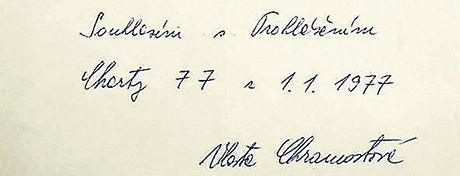 Souhlasím s Prohlášením
Charty 77 z 1.1.1977
Vlasta Chramostová